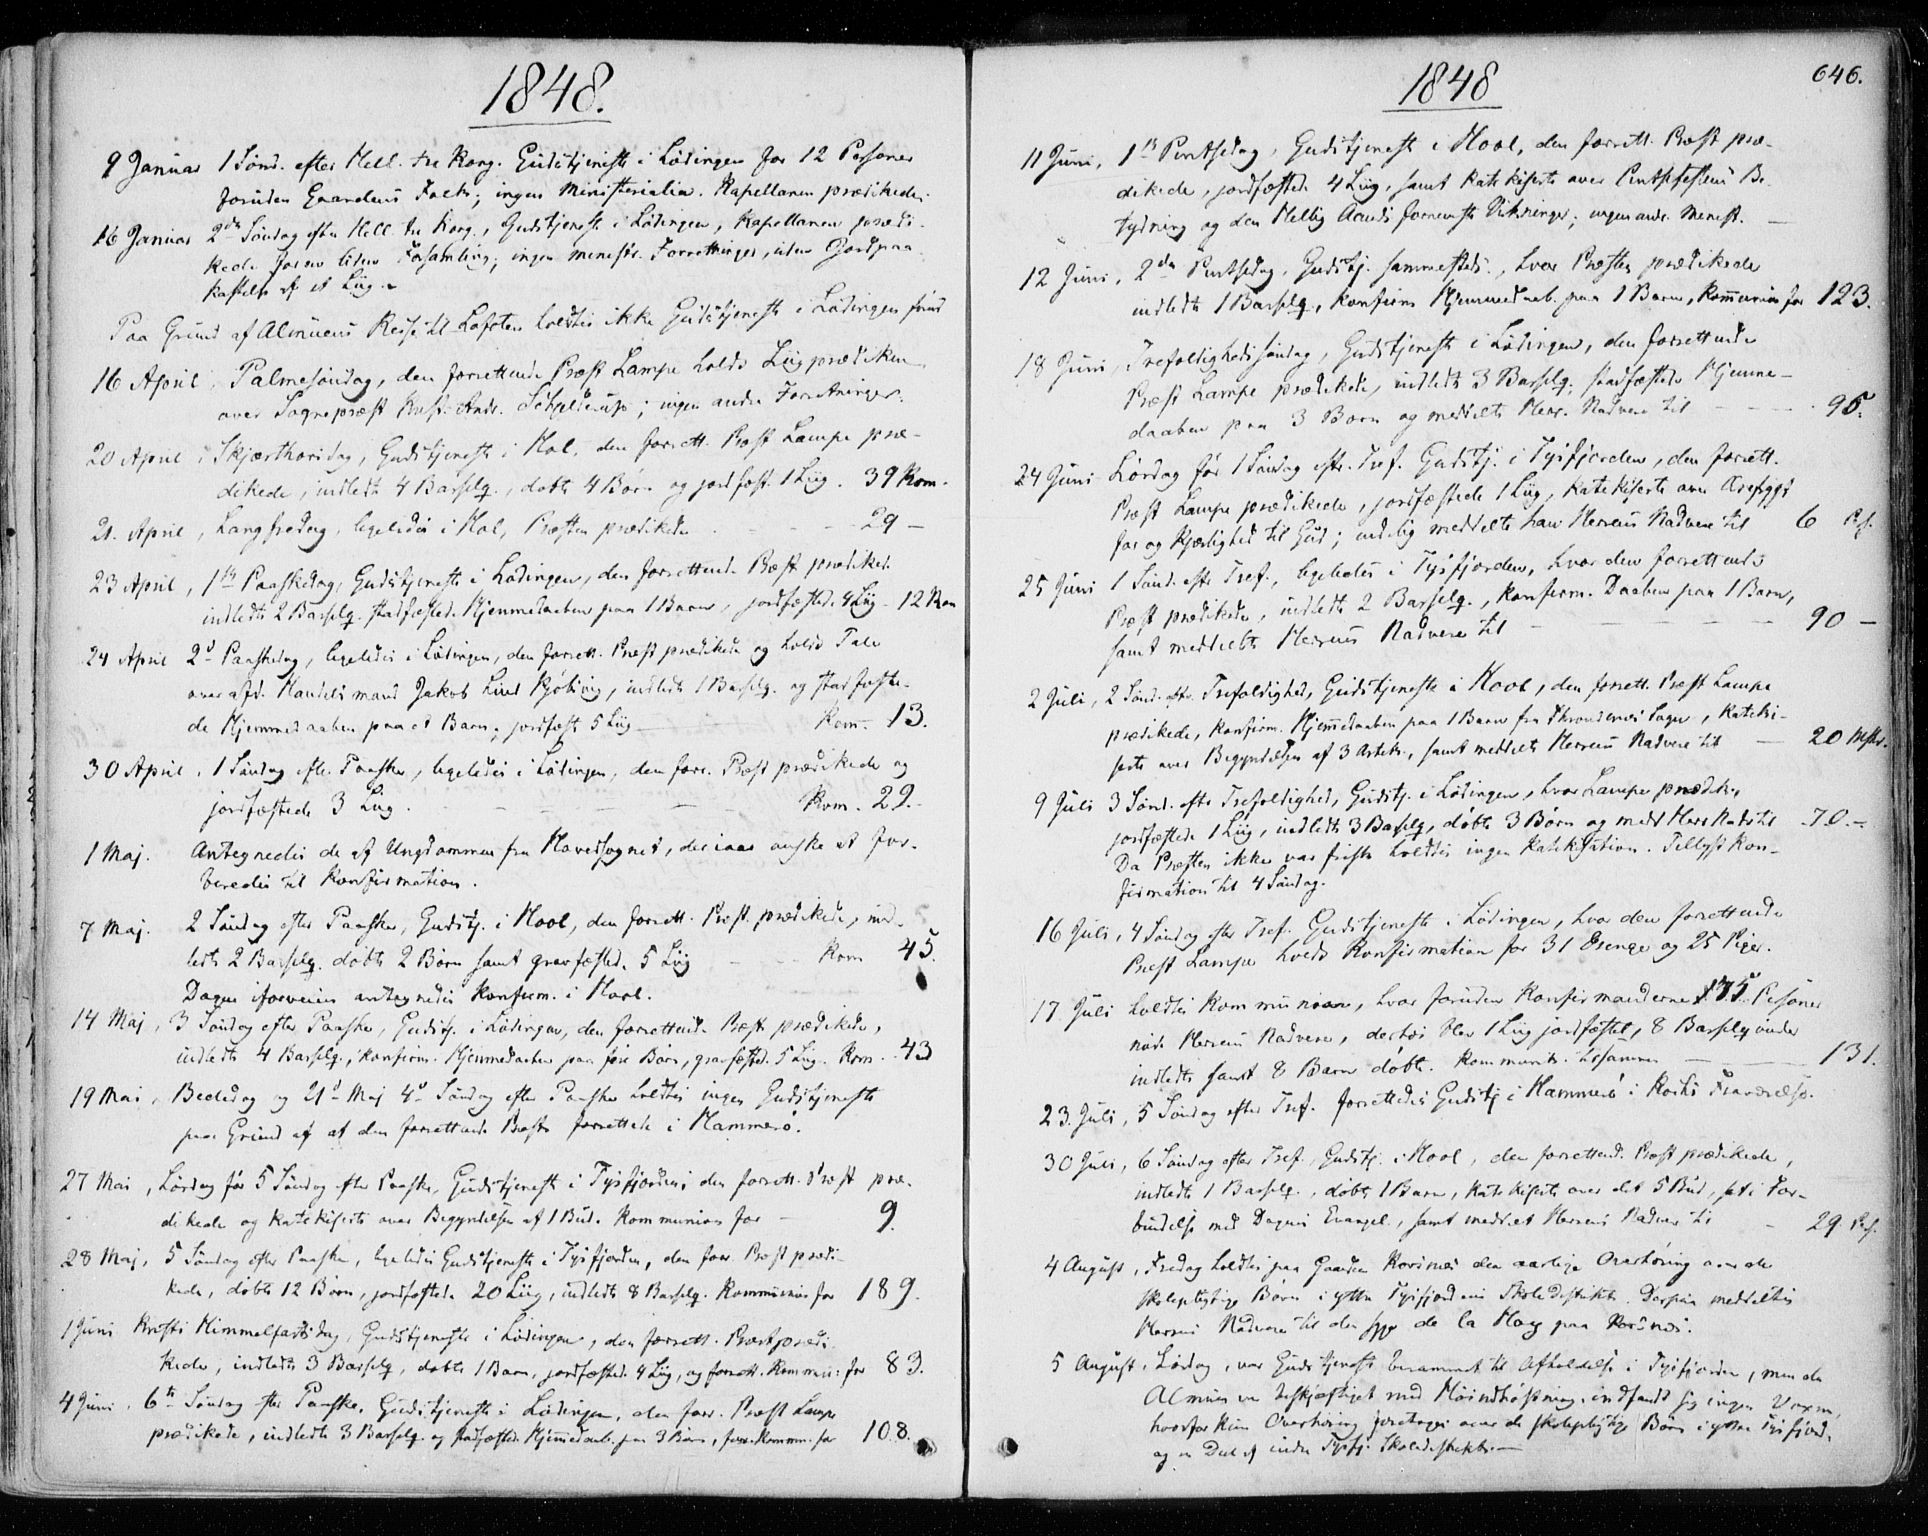 1848.
9 Januar 1 Sönd. efter Hell. tre Kong. Gudstjeneste i Lödingen for 12 Personer
foruden Gaardens Folk; ingen Ministerialia. Kapellanen prædikede.
16 Januar 2den Söndag efter Hell. tre Kong., Gudstjeneste i Lödingen, Kapellanen prædi-
kede for en liden Forsamling; ingen ministr. Forretninger, uden Jordpaa
kastelse af et Liig.
Paa Grund af Almuens Reise til Lofoten holdtes ikke Gudstjeneste i Lödingen förend
16 April, Palmesöndag, den forrettende Præst Lampe holdt Liigprædiken
over Sognepræst Schjelderup; ingen andre Forretninger.
20 April, Skjærthorsdag, Gudstjeneste i Hol, den forrett. Præst Lampe præ-
dikede, indledte 4 Barselq., döbte 4 Börn og jordfæst. 1 Liig. 39 Kom.
21. April, Langfredag, ligeledes i Hol, Præsten prædikede - - 29 -
23 April, 1ste Paaskedag, Gudstjeneste i Lödingen, den forrettend. Præst prædiked.
indledte 2 Barselq. stadfæsted. Hjemmedaaben paa 1 Barn, jordfæsted. 4 Liig - 12 Kom
24 April 2d Paaskedag, ligeledes i Lödingen, den forrett. Præst prædikede og holdt Tale
over afd. Handelsmand Jakob Lind Kjöbing, indledte 1 Barselq. og stadfæste-
de Hjemmedaaben paa et Barn; jordfæst 5 Liig - Kom - 13.
30 April, 1 Söndag efter Paaske, ligeledes i Lödingen, den forr. Præst prædikede og
jordfæstede 3 Liig. - - - Kom. 29.-
1 Maj. Antegnedes de af Ungdommen fra Hovedsognet, der iaar önske at for-
beredes til Konfirmation.
7 Maj. 2 Söndag efter Paaske, Gudstj. i Hool, den forrett. Præst. prædikede, ind-
ledte 2 Barselq. döbte 2 Börn samt gravfæsted. 5 Liig - - Kom 45.
Dagen iforveien antegnedes Konfirm. i Hool.
14 Maj, 3 Söndag efter Paaske, Gudstj. i Lödingen, den forrettend. Præst prædikede,
indledte 4 Barselq., konfirm. Hjemmedaaben paa fire Börn, gravfæsted. 5 Liig. Kom. 43
19 Mai, Bededag og 21d Maj 4d Söndag efter Paaske holdtes ingen Gudstjeneste
paa Grund af at den forrettende Præst forrettede i Hammerö.
27 Mai, Lördag för 5 Söndag efter Paaske, Gudstjeneste i Tysfjorden; den forrett. Præst præ-
dikede og katekiserte over Begyndelsen af 1 Bud. Kommunion for - 9.
28 Maj, 5 Söndag efter Paaske, ligeledes Gudstjeneste i Tysfjorden, den forr. Præst prædi-
kede, döbte 12 Börn, jordfæstede 20 Liig, indledte 8 Barselq. Kommunion for 189.
1 Juni Kristi Himmelfartsdag, Gudstjeneste i Lödingen, den forrett. Præst prædi-
kede, indledte 3 Barselq., döbte 1 Barn, jordfæsted. 4 Liig, og forrett. Kommun: for 83.
4 Juni, 6te Söndag efter Paaske, Gudstjeneste i Lödingen, den forr. Præst Lampe
prædikede, indledte 3 Barselq. og stadfæsted. Hjemmedaab. paa 3 Börn, Komm. for 108.
1848
646.
11 Juni, 1ste Pintsedag, Gudstjeneste i Hool, den forrett. Præst præ-
dikede, jordfæstede 4 Liig, samt katekiserte over Pintsefestens Be-
tydning og den Hellig Aands fornemste Virkninger; ingen andre Minist.
12 Juni, 2den Pintsedag, Gudstj. sammesteds, hvor Præsten prædikede
indledte 1 Barselq., konfirm. Hjemmedaab. paa 1 Barn, Kommunion for 123.
18 Juni, Trefoldighedssöndag, Gudstjeneste i Lödingen, den forrettende
Præst Lampe prædikede, indledte 3 Barselq., stadfæstede Hjemme-
daaben paa 3 Börn og meddelte Herr. Nadvere til - - - 95.
24 Juni Lördag för 1 Söndag eftr. Tref. Gudstj. i Tysfjorden, den forrett.
Præst Lampe prædikede, jordfæstede 1 Liig, katekiserte over Ærefrygt
for og Kjærlighed til Gud; endelig meddelte han Herrens Nadvere til 6 Prs.
25 Juni 1 Sönd. efter Tref., ligeledes i Tysfjorden, hvor den forrettende
Præst prædikede, indledte 2 Barselq., konfirm. Daaben paa 1 Barn,
samt meddelte Herrens Nadvere til - - - 90 -
2 Juli, 2 Sönd. eftr. Trefoldighed, Gudstjeneste i Hool, den forrett. Præst Lampe
prædikede, konfirm. Hjemmedaaben paa 1 Barn fra Throndenæs Sogn, kateki-
serte over Begyndelsen af 3 Artik., samt meddelte Herrens Nadvere til - 20
9 Juli 3 Sönd. efter Trefoldighed, Gudstj. i Lödingen, hvor Lampe prædik.,
jordfæstede 1 Liig, indledte 3 Barselq., döbte 3 Börn og medd Herr Nadv til 70.-
Da Præsten ikke var frisk holdtes ingen Katekisation. Tillyst Kon-
firmation til 4 Söndag.
16 Juli, 4 Söndag efter Tref. Gudstjeneste i Lödingen, hvor den forrettende
Præst Lampe holdt Konfirmation for 31 Drenge og 25 Piger.
17. Juli holdtes Kommunion, hvor foruden Konfirmanderne 75. Personer
nöde Herrens Nadvere, derhos blev 1 Liig jordfæstet, 8 Barselqvinder
indledte samt 8 Börn döbte. Kommunik. tilsammen - - 131.
23. Juli, 5 Söndag efter Tref. forrettedes Gudstj i Hammerö i Kochs Fraværelse.
30 Juli, 6 Söndag efter Tref., Gudstj. i Hool, den forrettend. Præst prædikede,
indledte 1 Barselq., döbte 1 Barn, katekiserte over det 5 Bud, sat i For-
bindelse med Dagens Evangel., samt meddelt Herrens Nadver til - 29 Prs.
4 August, Fredag holdtes paa Gaarden Korsnæs den aarlige Overhöring over de
skolepligtige Börn i yttre Tysfjordens Skoledistrikt. Derpaa meddeltes
Herrens Nadvere til den syge de la Hay paa Korsnæs.
5 August, Lördag, var Gudstjeneste berammet til Afholdelse i Tysfjorden, men da
Almuen var beskjæftiget med Höindhöstning, indfandt sig ingen Voxne,
hvorfor kun Overhöring foretoges over de skolepligtige Börn i yttre Tysfjord.
og en Deel af indre Tysfj. Skoledistrikt. -